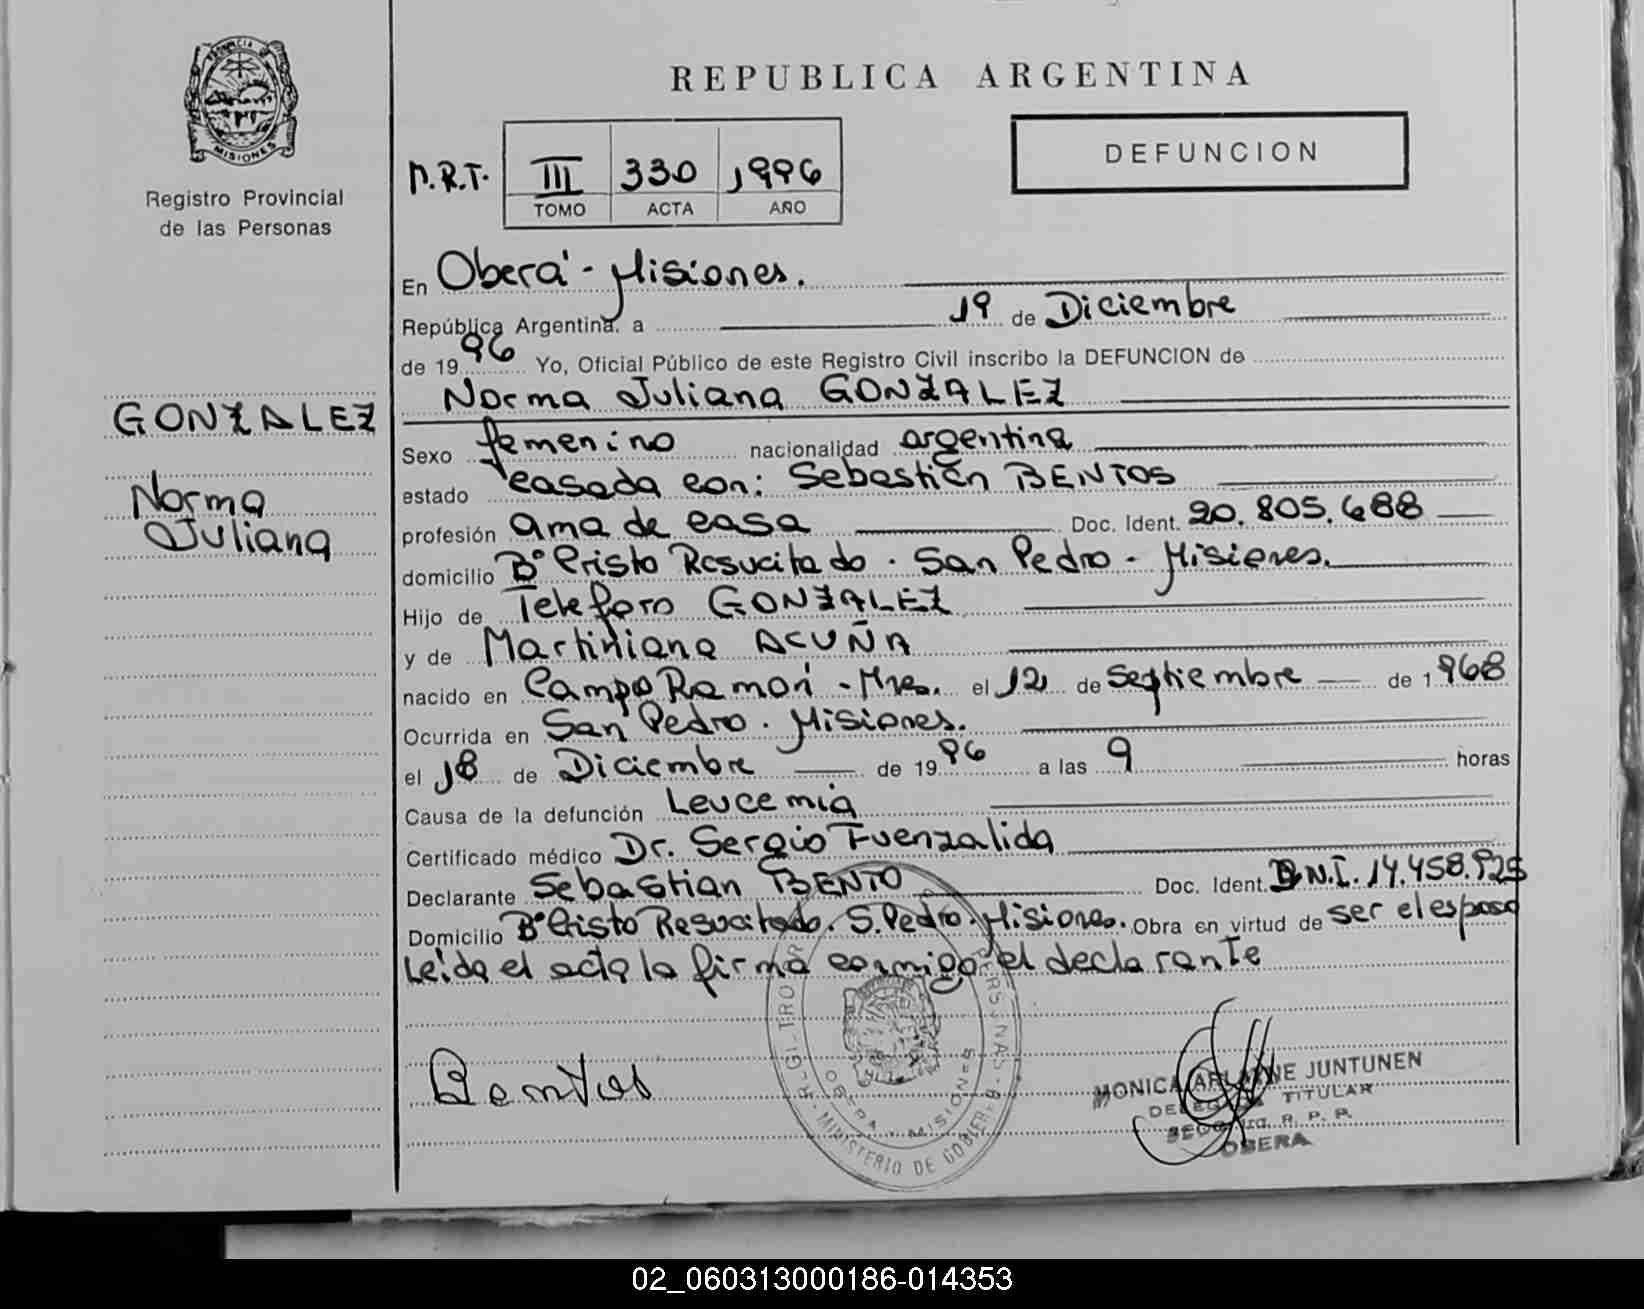 PROVINCIA
MISIONES
Registro Provincial
de las Personas
REPUBLICA ARGENTINA
DEFUNCION
D.R.T. III 330 1996
TOMO ACTA AÑO
En Oberá - Misiones.
República Argentina, a 19 de Diciembre
de 1996 Yo, Oficial Público de este Registro Civil inscribo la DEFUNCION de
Norma Juliana GONZALEZ
GONZALEZ
Norma
Juliana
Sexo femenino nacionalidad argentina
estado casada con: Sebastián BENTOS
profesión ama de casa Doc. Ident. 20.805.688
domicilio Bº Cristo Resucitado. San Pedro - Misiones.
Hijo de Teleforo GONZALEZ
y de Martiniana ACUÑA
nacido en Campo Ramón - Mnes. el 12 de Septiembre de 1968
Ocurrida en San Pedro. Misiones.
el 18 de Diciembre de 1996 a las 9 horas
Causa de la defunción Leucemia
Certificado médico Dr. Sergio Fuenzalida
Declarante Sebastian BENTO Doc. Ident. D.N.I. 14.458.925
Domicilio Bº Cristo Resucitado. S. Pedro - Misiones. Obra en virtud de ser el esposo
Leida el acta la firma conmigo el declarante
Bentos
MINISTERIO DE GOBIER
OBERA MISIONES
MONICA ARLAINE JUNTUNEN
TITULAR
R. P. P.
OBERA
02_060313000186-014353